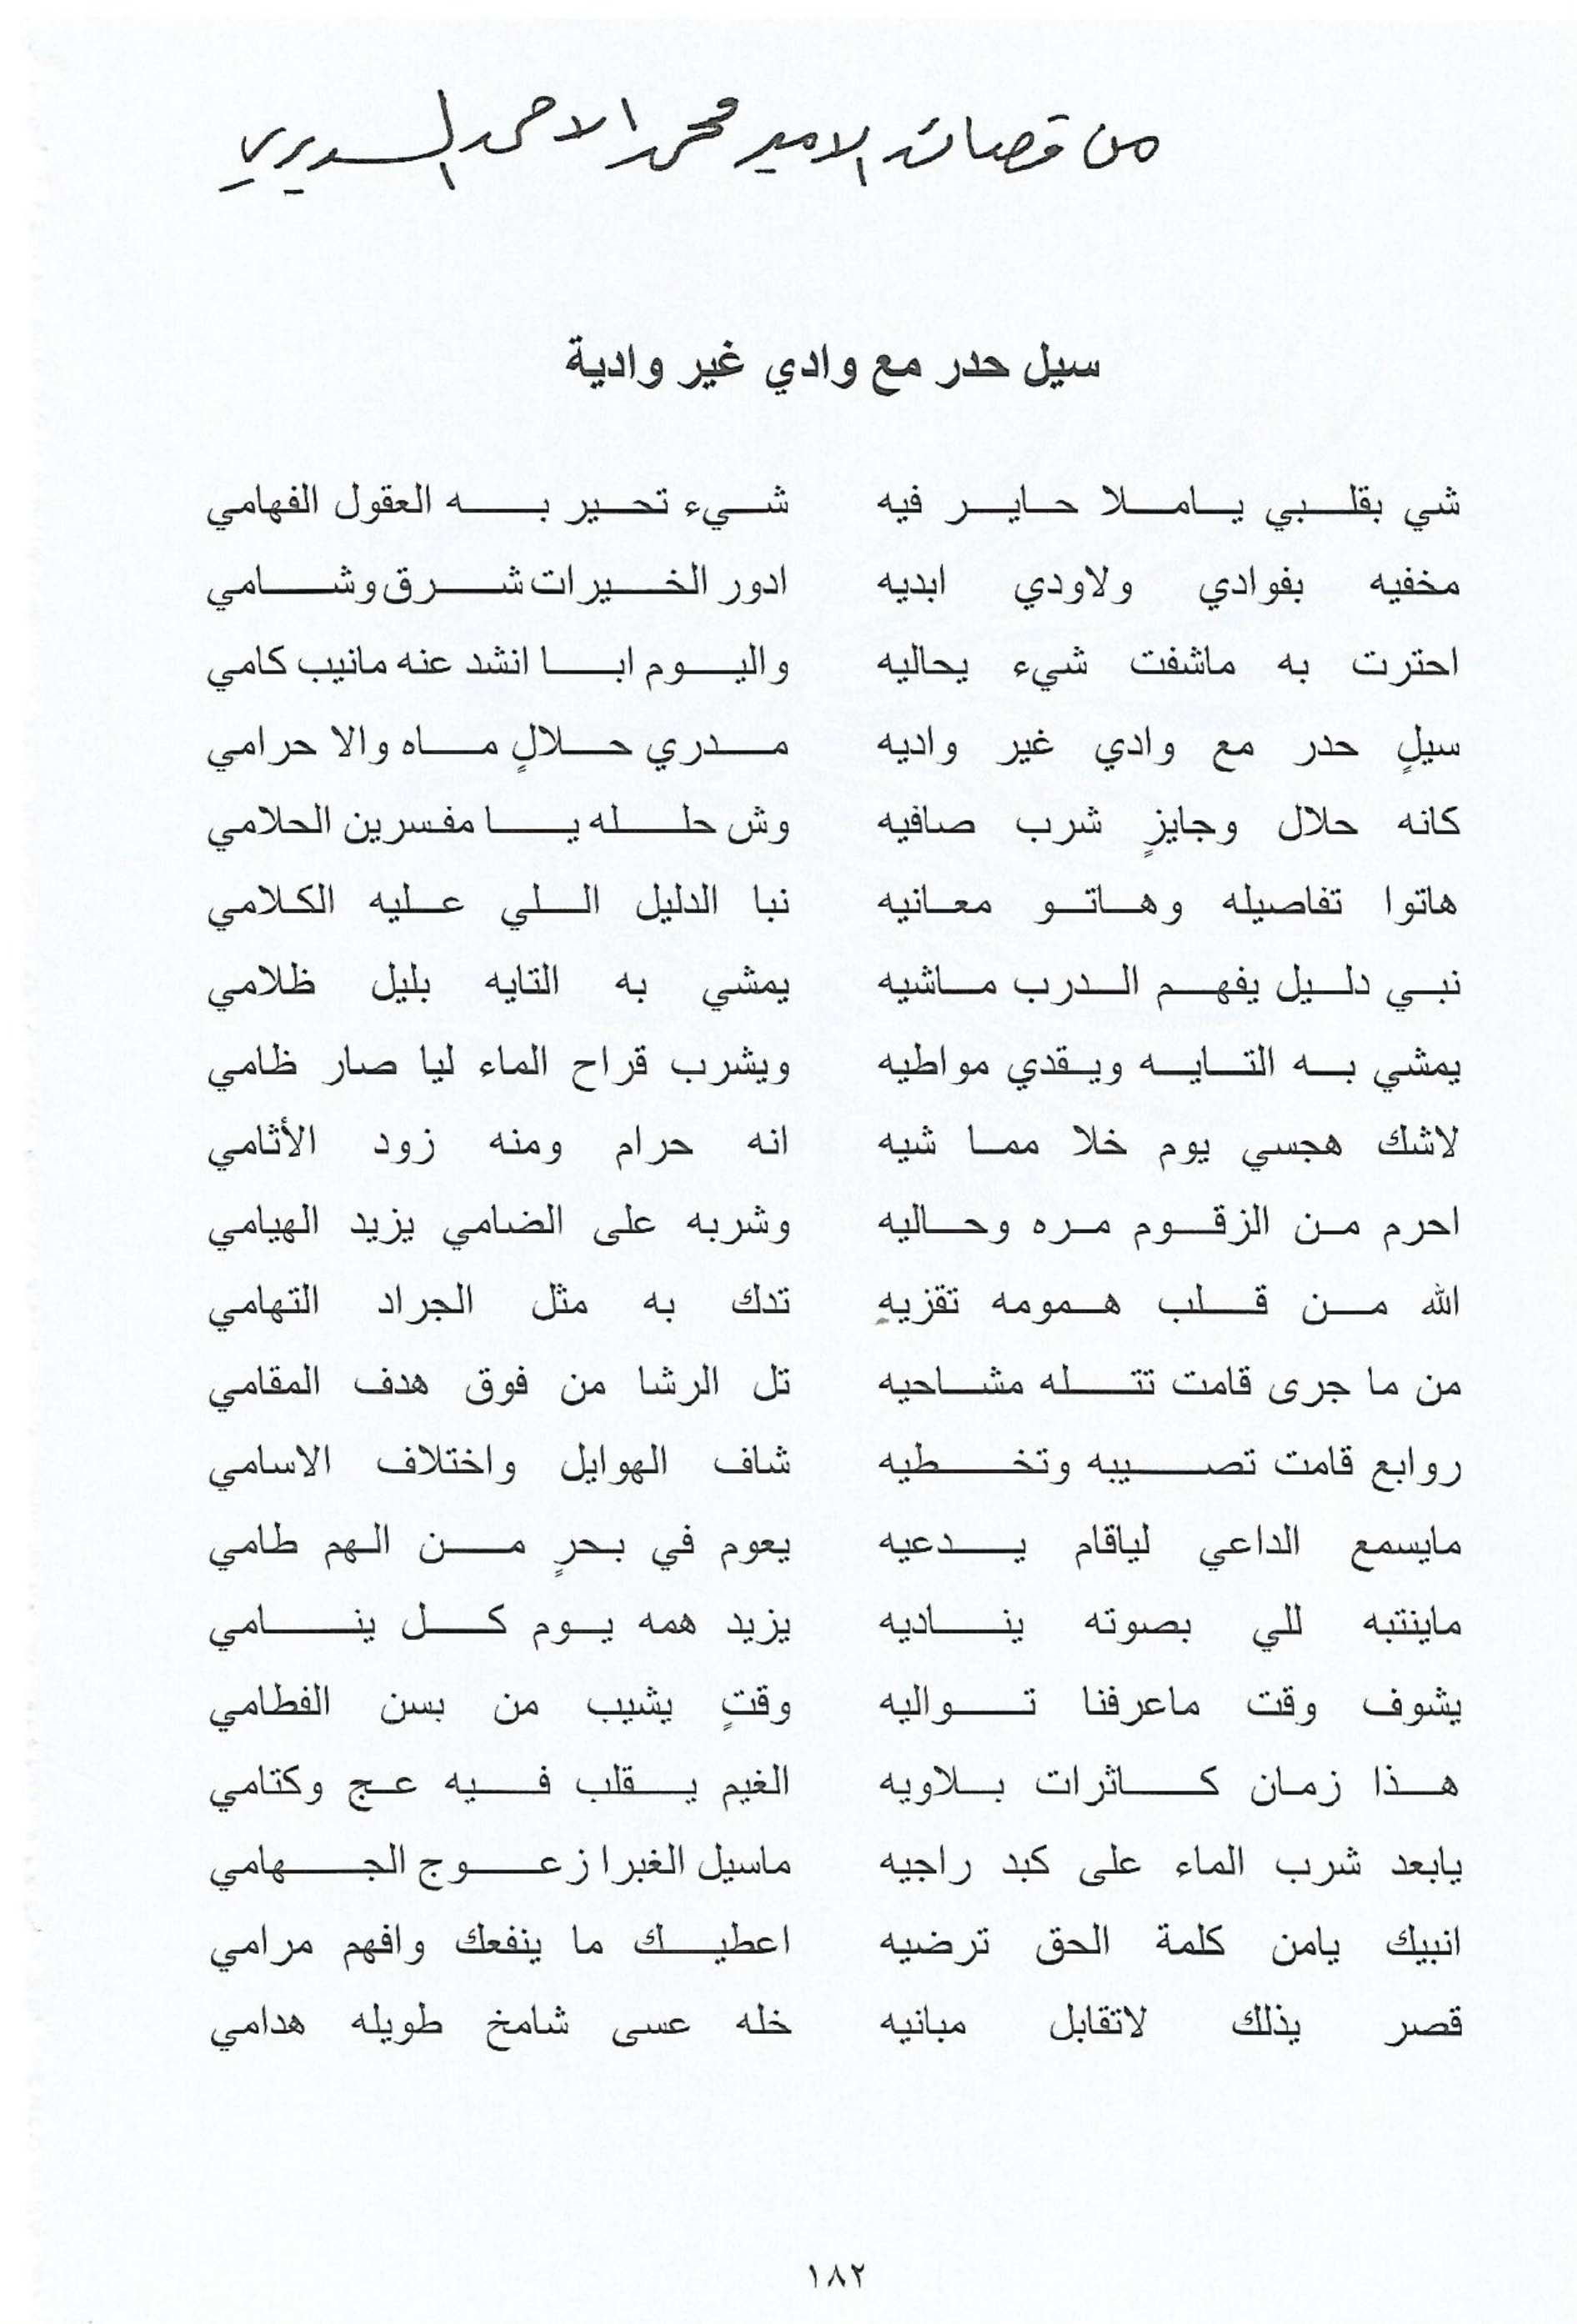 من قصائد الامير محمد الاحمد السديري
سيل حدر مع وادي غير وادية
شي بقلبي ياملا حاير فيه شيء تحير به العقول الفهامي
مخفيه بفوادي ولاودي ابديه ادور الخيرات شرق وشامي
احترت به ماشفت شيء يحاليه واليوم ابا انشد عنه مانيب كامي
سيلٍ حدر مع وادي غير واديه مدري حلالٍ ماه والا حرامي
كانه حلال وجايزٍ شرب صافيه وش حلله يا مفسرين الحلامي
هاتوا تفاصيله وهاتو معانيه نبا الدليل اللي عليه الكلامي
نبي دليل يفهم الدرب ماشيه يمشي به التايه بليل ظلامي
يمشي به التايه ويقدي مواطيه ويشرب قراح الماء ليا صار ظامي
لاشك هجسي يوم خلا مما شيه انه حرام ومنه زود الأثامي
احرم من الزقوم مره وحاليه وشربه على الضامي يزيد الهيامي
الله من قلب همومه تقزيه تدك به مثل الجراد التهامي
من ما جرى قامت تتله مشاحيه تل الرشا من فوق هدف المقامي
روابع قامت تصيبه وتخطيه شاف الهوايل واختلاف الاسامي
مايسمع الداعي لياقام يدعيه يعوم في بحرٍ من الهم طامي
ماينتبه للي بصوته يناديه يزيد همه يوم كل ينامي
يشوف وقت ماعرفنا تواليه وقتٍ يشيب من بسن الفطامي
هذا زمان كاثرات بلاويه الغيم يقلب فيه عج وكتامي
يابعد شرب الماء على كبد راجيه ماسيل الغبرا زعوج الجهامي
انبيك يامن كلمة الحق ترضيه اعطيك ما ينفعك وافهم مرامي
قصر يذلك لاتقابل مبانيه خله عسى شامخ طويله هدامي
١٨٢